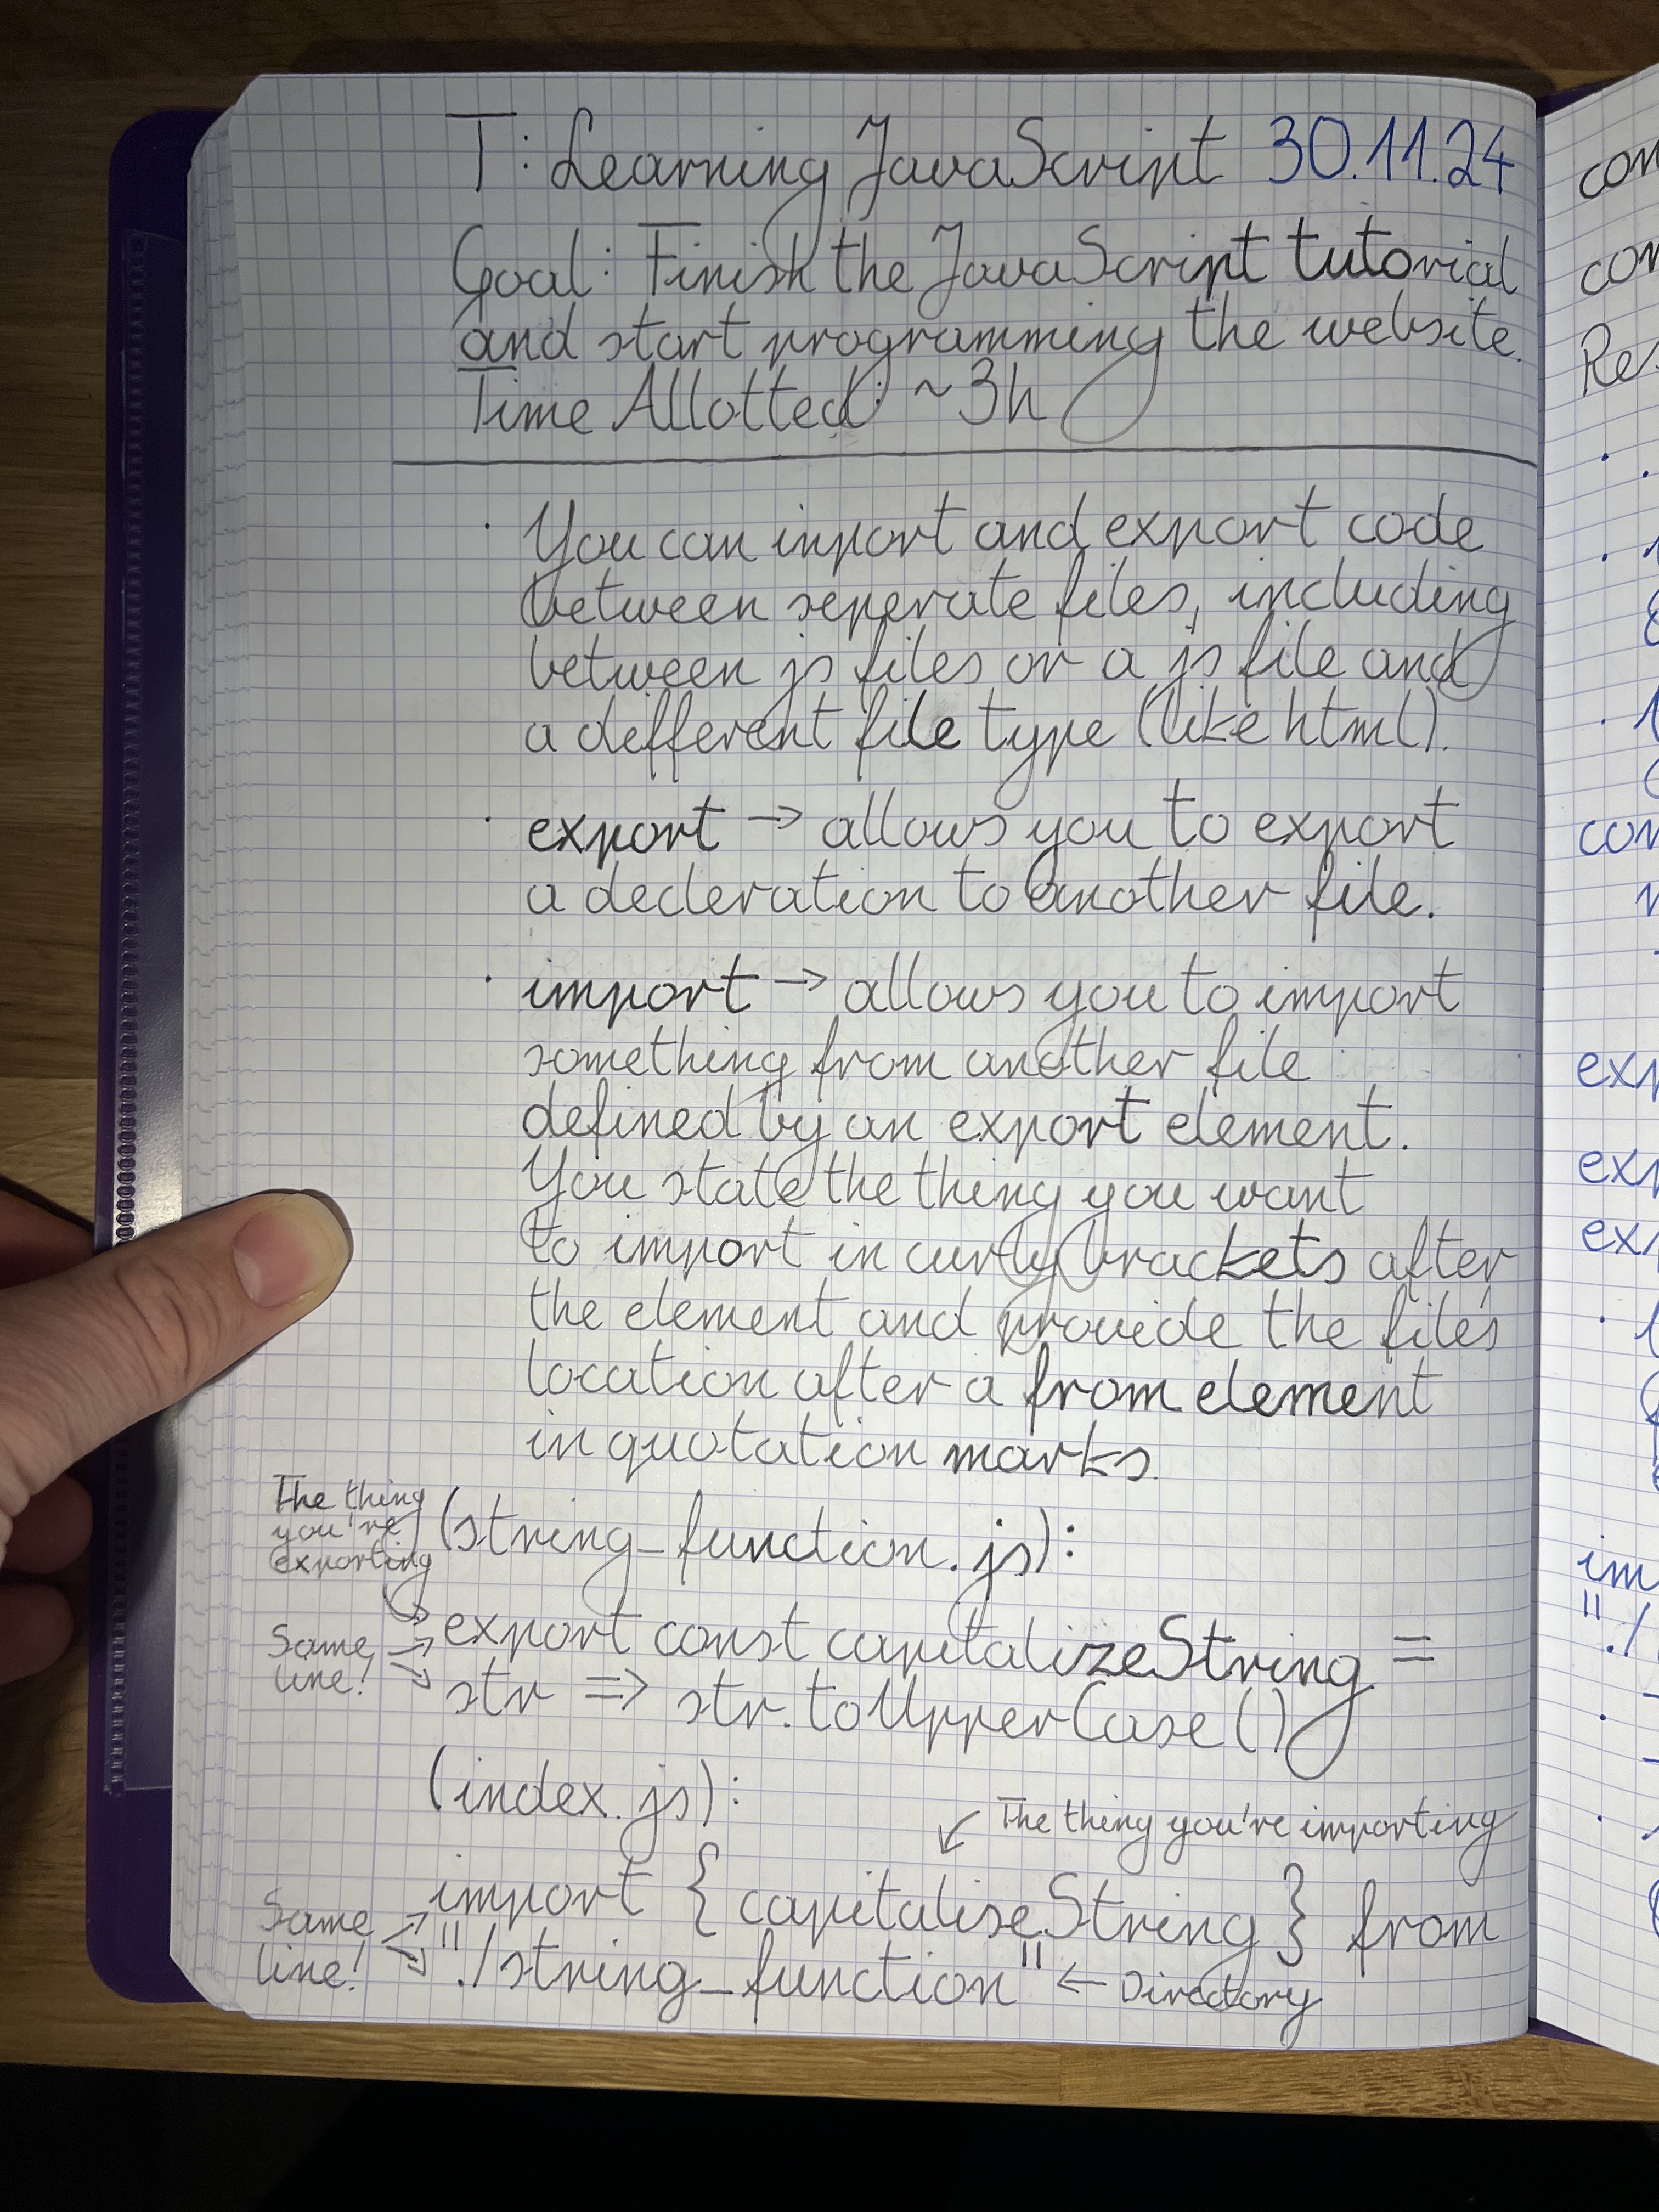 T: Learning JavaScript 30.11.24
Goal: Finish the JavaScript tutorial
and start programming the website.
Time Allotted: ~3h
· You can inport and export code
between seperate files, including
between js files or a js file and
a defferent file type (like html).
· export → allows you to export
a decleration to another file.
· import → allows you to import
something from another file
defined by an export element.
You state the thing you want
to import in curly brackets after
the element and provide the file's
location after a from element
in quotation marks.
The thing
you're
exporting
(string_function.js):
Same
line!
export const capitalizeString =
str => str.toUpperCase()
(index.js):
The thing you're importing
Same
line!
import { capitaliseString } from
"./string_function" ← Directory
con
con
Res
con
exp
exp
exp
im
"./